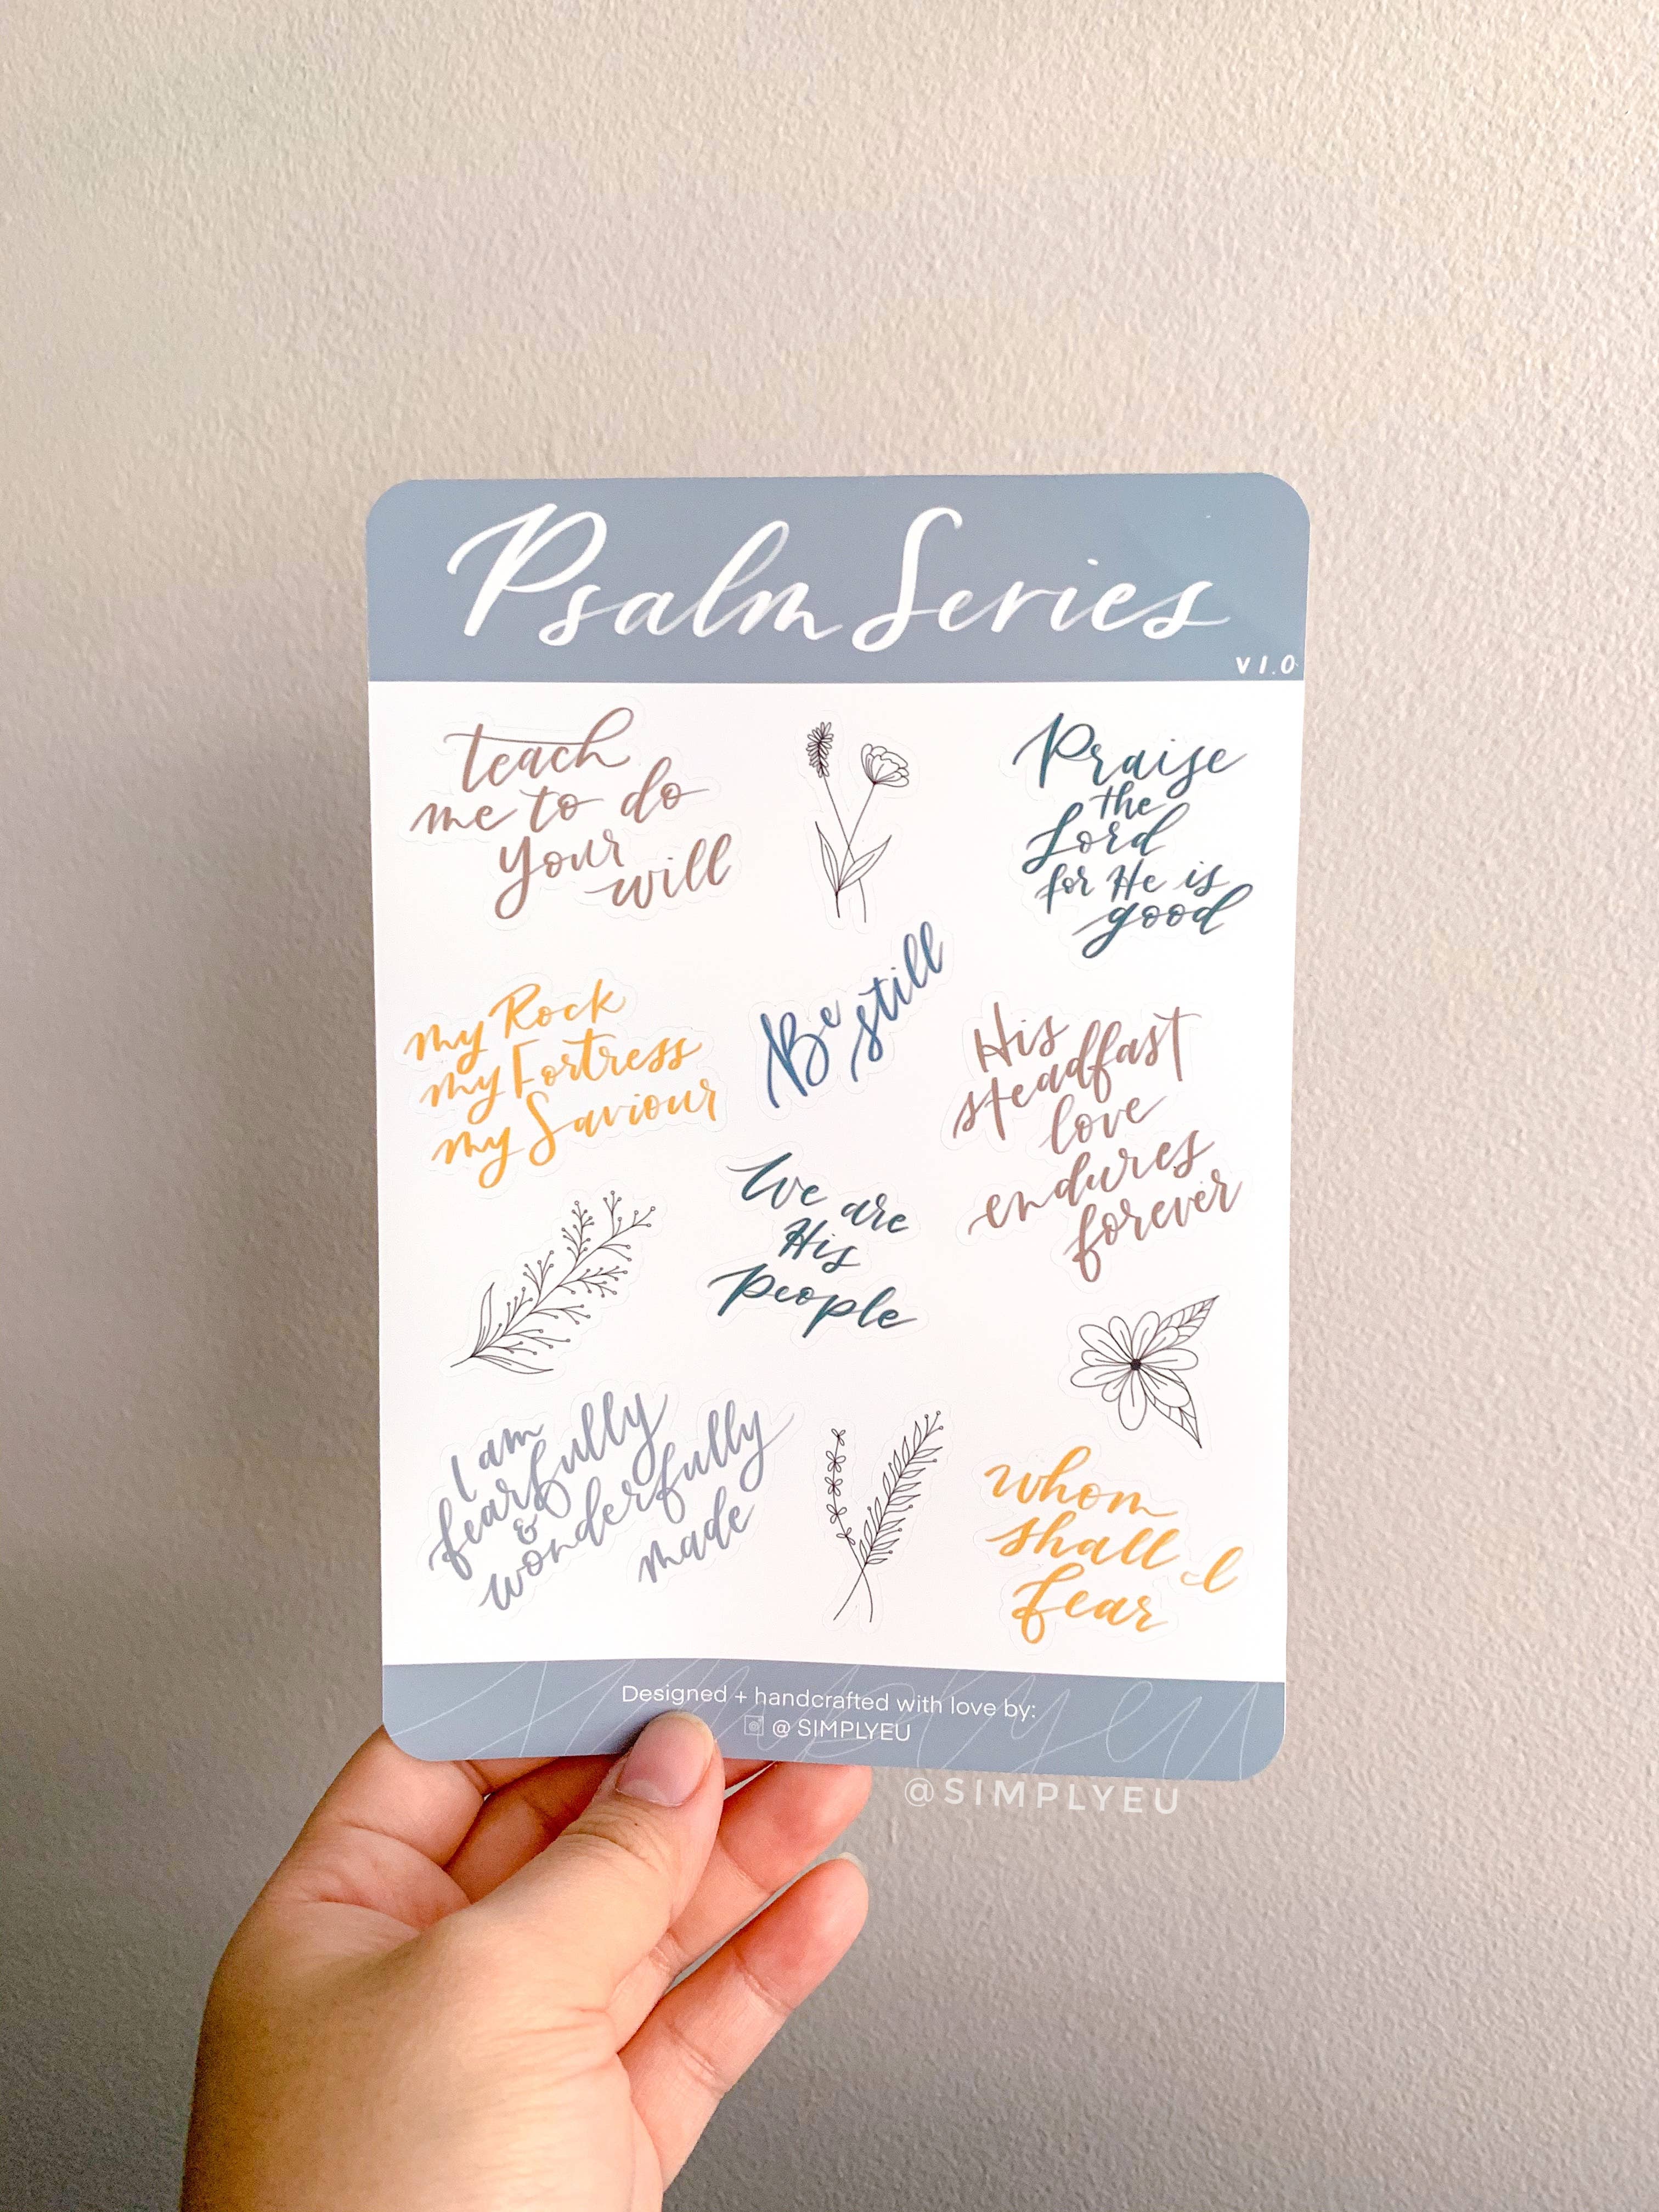 Psalm Series
V1.0
teach
me to do
your
will
Praise
the
Lord
for He is
good
my Rock
my Fortress
my Saviour
Be
still
His
steadfast
love
endures
forever
We are
His
people
I am
fearfully
&
wonderfully
made
whom
shall I
fear
simplyeu
Designed + handcrafted with love by:
@ SIMPLYEU
@SIMPLYEU